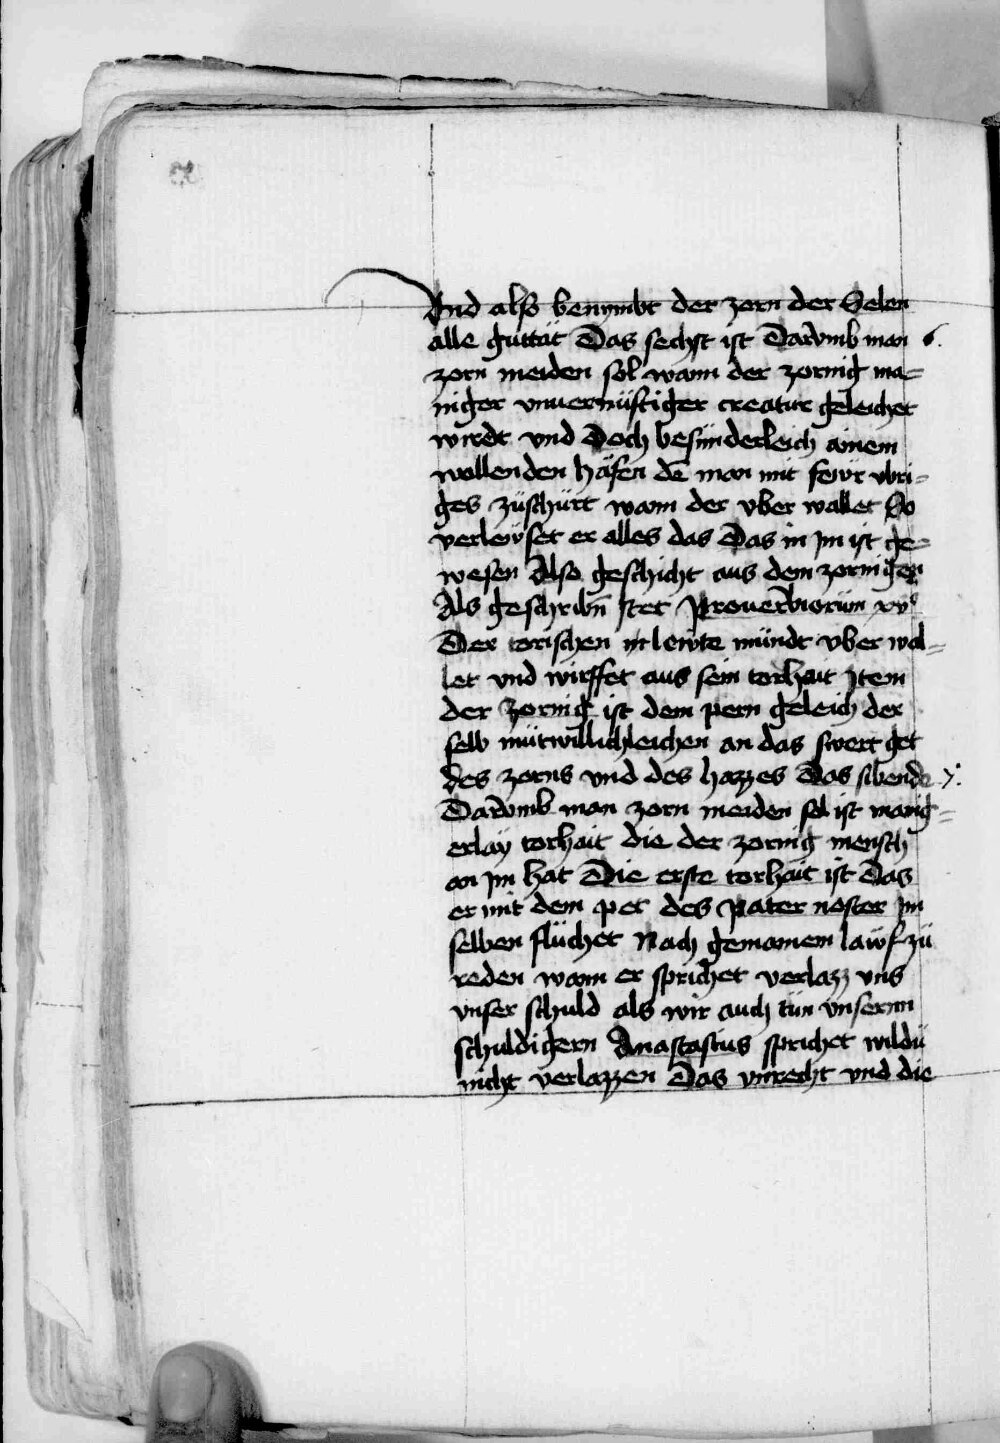 Vnd also benymbt der zorn der Selen
alle guttät Das sechst ist Darvmb man 6.
zorn meiden sol wann der zornig ma=
niger vnuernüftiger creatur geleichet
wirdt vnd Doch besünderleich ainem
wallenden häfen dē man mit fewr vbri=
ges züschürt wann der vber wallet So
verlewset er alles das Das in jm ist ge=
wesen Also geschicht aus dem zornigen
Als geschribn̄ stet Prouerbiorum xv
Der torischen lewte mündt vber wal=
let vnd wirffet aus sein torhait Jtem
der zornig ist dem pern geleich der
selb mütwillichleichen an das swert get
des zorns vnd des hazzes Das sibende 7.
Darvmb man zorn meiden sol ist manig=
erlay torhait die der zornig mensch
an jm hat Die erste torhait ist Das
er mit dem pet des Pater noster jm
selben flüchet Nach gemainem lawf zü
reden wann er sprichet verlazz vns
vnser schuld als wir auch tün vnsernn
schuldigern Anastasius sprichet wildü
nicht verlazzen Das vnrecht vnd die